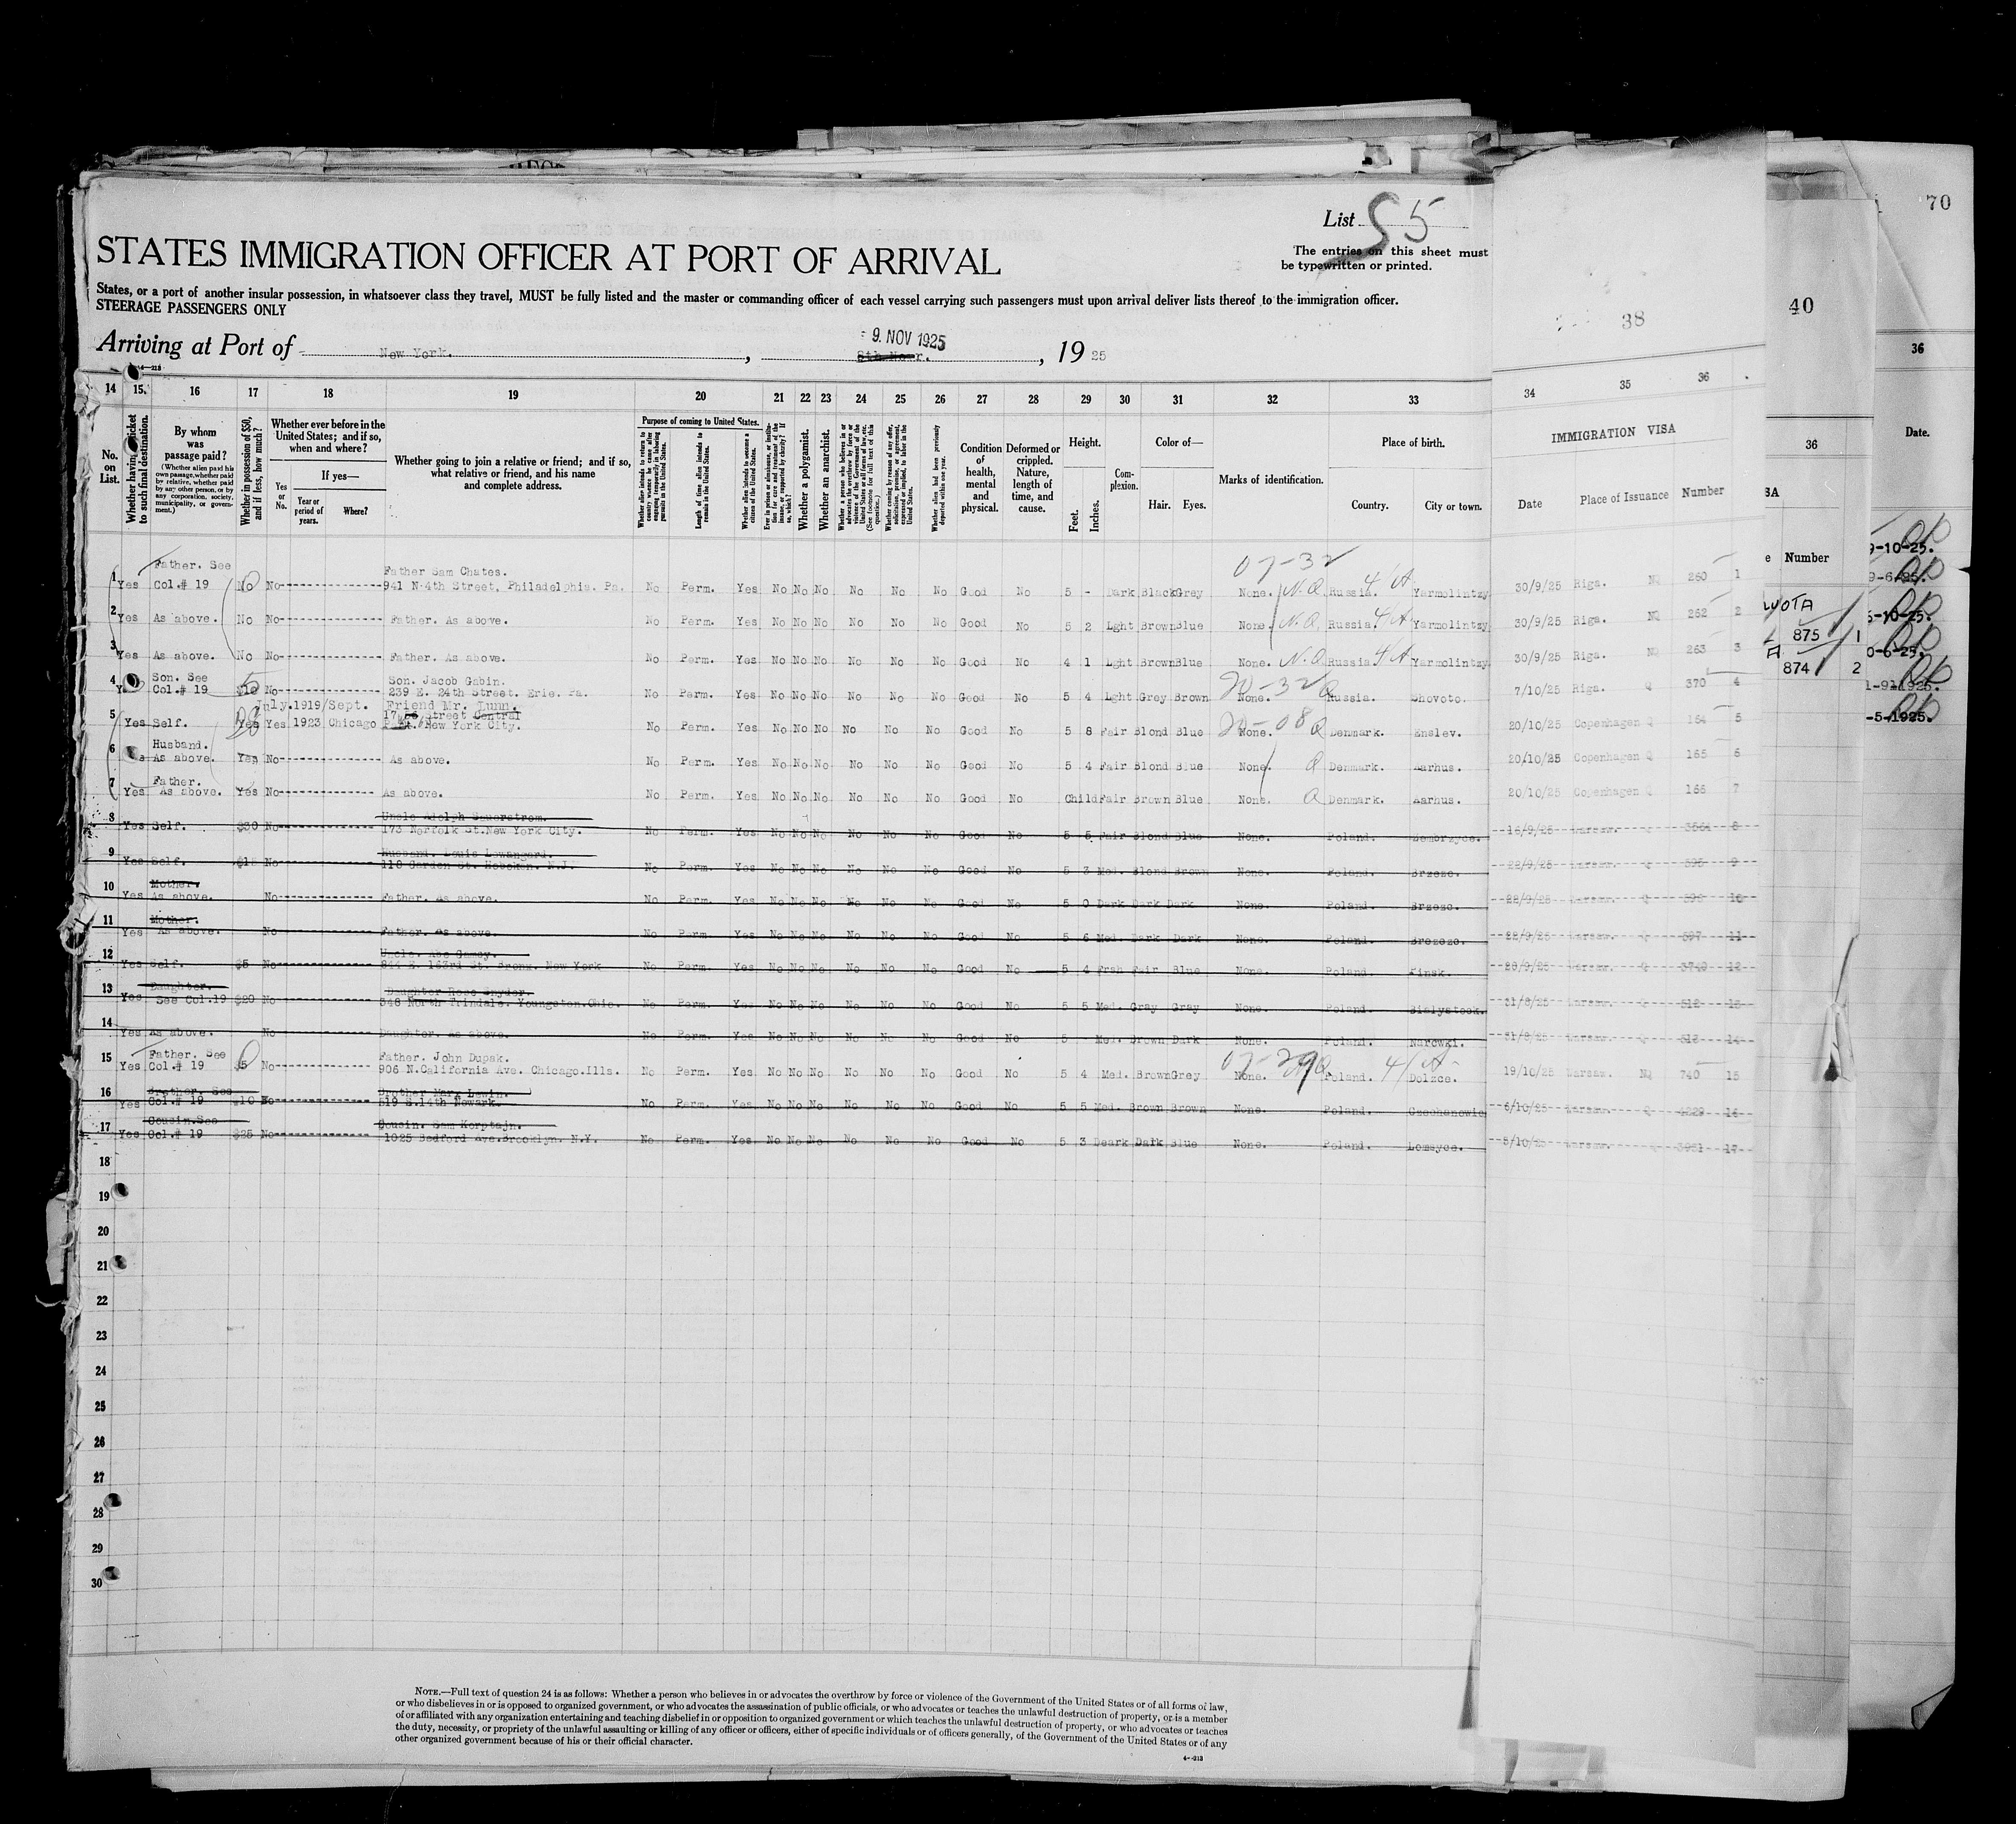 List S5
STATES IMMIGRATION OFFICER AT PORT OF ARRIVAL
The entries on this sheet must
be typewritten or printed.
States, or a port of another insular possession, in whatsoever class they travel, MUST be fully listed and the master or commanding officer of each vessel carrying such passengers must upon arrival deliver lists thereof to the immigration officer.
STEERAGE PASSENGERS ONLY
Arriving at Port of New York. , 9 NOV 1925 , 19 25
14 15. 16 17 18 19 20 21 22 23 24 25 26 27 28 29 30 31 32 33
No. on List.
Whether having ticket to such final destination.
By whom was passage paid?
(Whether alien paid his own passage, whether paid by relative, whether paid by any other person, or by any corporation, society, municipality, or government.)
Whether in possession of $50, and if less, how much?
Whether ever before in the United States; and if so, when and where?
If yes—
Yes or No.
Year or period of years.
Where?
Whether going to join a relative or friend; and if so, what relative or friend, and his name and complete address.
Purpose of coming to United States.
Whether alien intends to return to country whence he came after engaging temporarily in laboring pursuits in the United States.
Length of time alien intends to remain in the United States.
Whether alien intends to become a citizen of the United States.
Ever in prison or almshouse, or institution for care and treatment of the insane, or supported by charity? If so, which?
Whether a polygamist.
Whether an anarchist.
Whether a person who believes in or advocates the overthrow by force or violence of the Government of the United States or all forms of law, etc. (See footnote for full text of this question.)
Whether coming by reason of any offer, solicitation, promise, or agreement, expressed or implied, to labor in the United States.
Whether alien had been previously deported within one year.
Condition of health, mental and physical.
Deformed or crippled. Nature, length of time, and cause.
Height.
Feet. Inches.
Complexion.
Color of—
Hair. Eyes.
Marks of identification.
Place of birth.
Country. City or town.
38
34 35 36
IMMIGRATION VISA
Date Place of Issuance Number
07-32
1 Yes Father. See Col.# 19 No No Father Sam Chates. 941 N 4th Street. Philadelphia. Pa. No Perm. Yes No No No No No No Good No 5 - Dark Black Grey None. N.Q. Russia. 4/A Yarmolintzy 30/9/25 Riga. NQ 260 1
2 Yes As above. No No Father. As above. No Perm. Yes No No No No No No Good No 5 2 Lght Brown Blue None. N.Q. Russia 4/A Yarmolintzy 30/9/25 Riga. NQ 262 2
3 Yes As above. No No Father. As above. No Perm. Yes No No No No No No Good No 4 1 Lght Brown Blue None. N.Q Russia 4/A Yarmolintzy 30/9/25 Riga. NQ 263 3
4 Son. See Col.# 19 $10 No Son. Jacob Gabin. 239 E. 24th Street. Erie. Pa. No Perm. Yes No No No No No No Good No 5 4 Lght Grey Brown 20-32 None. Q Russia. Shovoto. 7/10/25 Riga. Q 370 4
5 Yes Self. Yes Yes July.1919/Sept. 1923 Chicago Friend Mr. Lunn. Street Central New York City. No Perm. Yes No No No No No No Good No 5 8 Fair Blond Blue 20-08 None. Q Denmark. Enslev. 20/10/25 Copenhagen Q 164 5
6 Husband. As above. Yes No As above. No Perm. Yes No No No No No No Good No 5 4 Fair Blond Blue None Q Denmark. Aarhus. 20/10/25 Copenhagen Q 165 6
7 Yes Father. As above. Yes No As above. No Perm. Yes No No No No No No Good No Child Fair Brown Blue None. Q Denmark. Aarhus. 20/10/25 Copenhagen Q 166 7
8 Yes Self. $30 No Uncle Adolph Sauerstrom. 173 Norfolk St. New York City. No Perm. Yes No No No No No No Good No 5 5 Fair Blond Blue None. Poland. Zembrzyce. 16/9/25 Warsaw. Q 3561 8
9 Yes Self. No Husband. Louis Lowangard. 110 Garden St. Hoboken. N.J. No Perm. Yes No No No No No No Good No 5 3 Med. Blond Brown None. Poland. Brzezc. 22/9/25 Warsaw. Q 595 9
10 Yes Mother. As above. No Father. As above. No Perm. Yes No No No No No No Good No 5 0 Dark Dark Dark None. Poland. Brzezc. 22/9/25 Warsaw. Q 596 10
11 Yes Mother. As above. No Father. As above. No Perm. Yes No No No No No No Good No 5 6 Med. Dark Dark None. Poland. Brzezc. 22/9/25 Warsaw. Q 597 11
12 Yes Self. $5 No Uncle. Abe Gamsy. 844 E. 163rd St. Bronx. New York No Perm. Yes No No No No No No Good No 5 4 Frsh Fair Blue None. Poland. Pinsk. 29/9/25 Warsaw. Q 3749 12
13 Yes Daughter. See Col.19 $20 No Daughter Rose Snyder. 548 North Youngston. Ohio. No Perm. Yes No No No No No No Good No 5 5 Med. Gray Gray None. Poland. Bialystock. 31/8/25 Warsaw. Q 512 13
14 Yes As above. No Daughter. As above. No Perm. Yes No No No No No No Good No 5 Med. Brown Dark None. Poland. Narowki. 31/8/25 Warsaw. Q 513 14
15 Yes Father. See Col.# 19 $5 No Father. John Dupak. 906 N.California Ave. Chicago.Ills. No Perm. Yes No No No No No No Good No 5 4 Med. Brown Grey 07-29 None. Poland. 4/A Dolzce. 19/10/25 Warsaw. NQ 740 15
16 Yes Brother. See Col.# 19 $10 No Brother Marq Lewin. 519 E.14th Newark. No Perm. Yes No No No No No No Good No 5 5 Med. Brown Brown None. Poland. Czechanowic 6/10/25 Warsaw. Q 4229 16
17 Yes Cousin.See Col.# 19 $25 No Cousin. Sam Korptajn. 1025 Bedford Ave.Brooklyn. N.Y. No Perm. Yes No No No No No No Good No 5 3 Deark Dark Blue None. Poland. Lomzyce. 5/10/25 Warsaw. Q 3951 17
18
19
20
21
22
23
24
25
26
27
28
29
30
NOTE.—Full text of question 24 is as follows: Whether a person who believes in or advocates the overthrow by force or violence of the Government of the United States or of all forms of law,
or who disbelieves in or is opposed to organized government, or who advocates the assassination of public officials, or who advocates or teaches the unlawful destruction of property, or is a member
of or affiliated with any organization entertaining and teaching disbelief in or opposition to organized government or which teaches the unlawful destruction of property, or who advocates or teaches
the duty, necessity, or propriety of the unlawful assaulting or killing of any officer or officers, either of specific individuals or of officers generally, of the Government of the United States or of any
other organized government because of his or their official character.
40
36
Number
875 1
874 2
70
36
Date.
9-10-25.
9-6/25.
5-10-25.
0-6-25.
1-9-1925.
-5-1925.